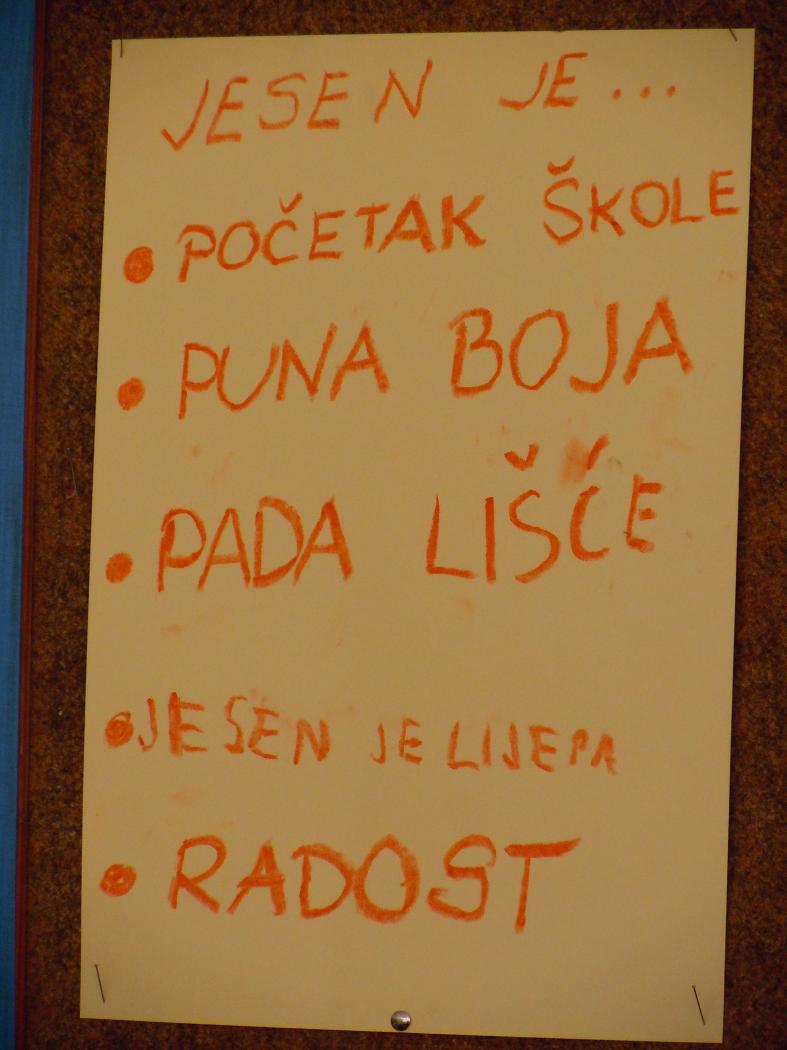 JESEN JE...
• POČETAK ŠKOLE
• PUNA BOJA
• PADA LIŠĆE
• JESEN JE LIJEPA
• RADOST